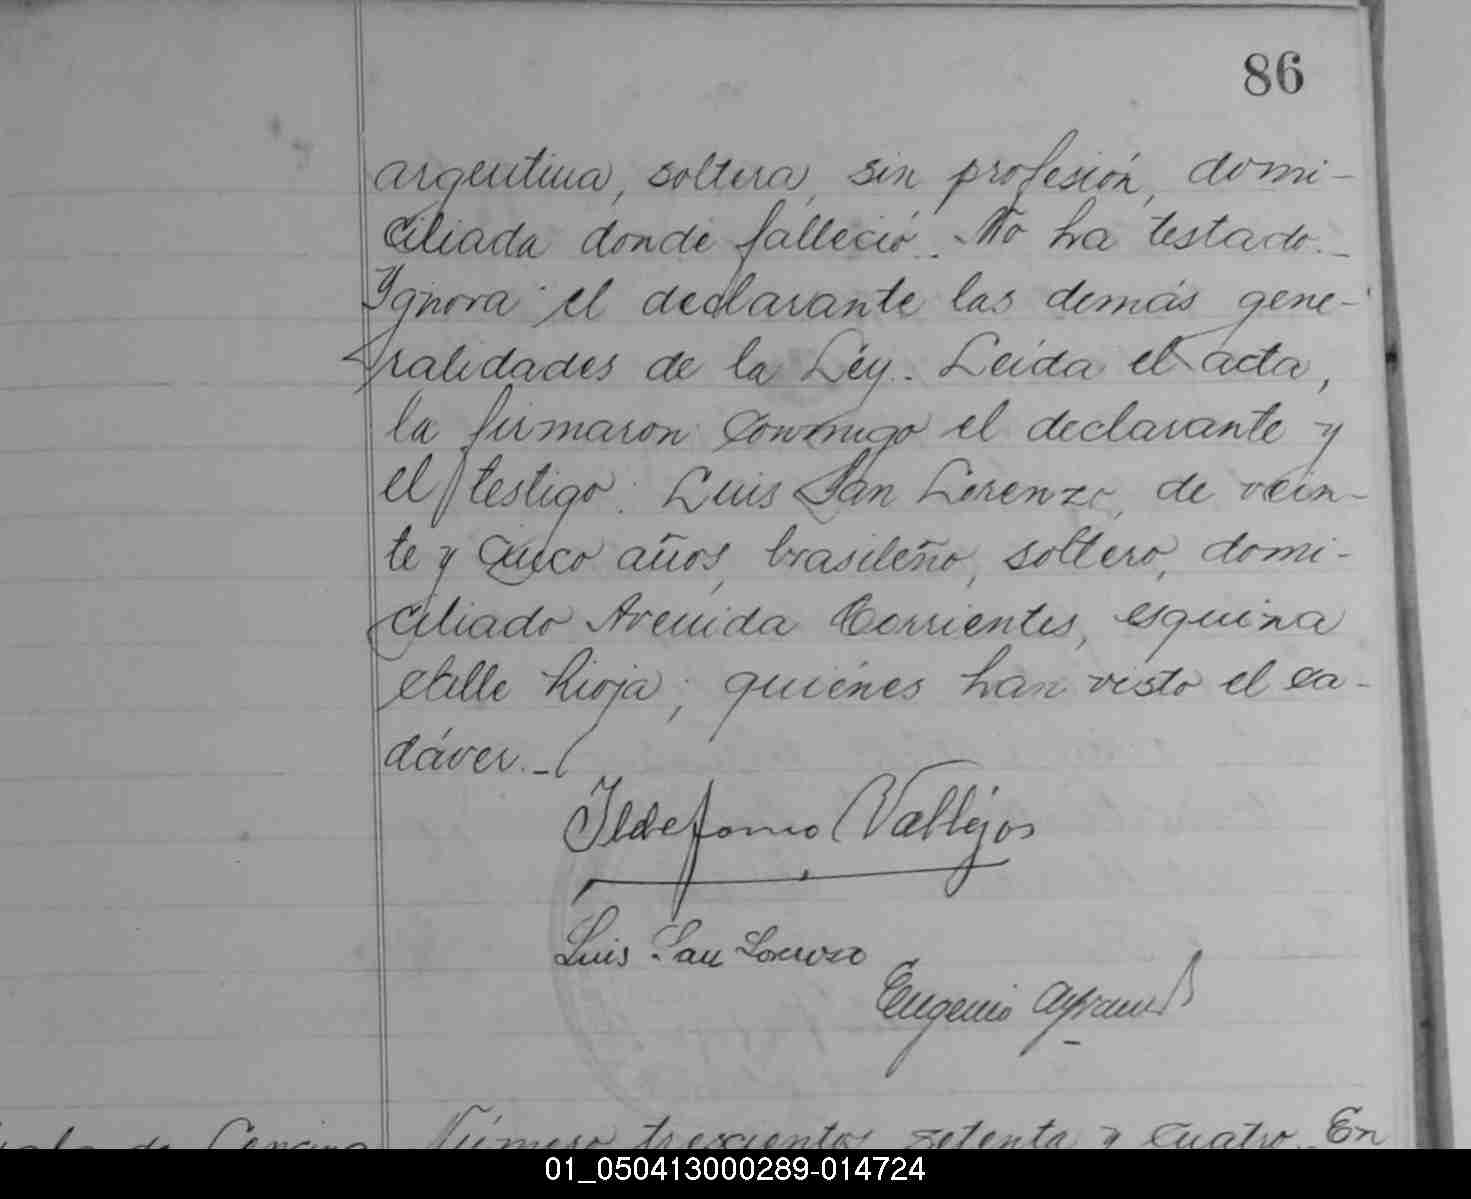 86
argentina, soltera, sin profesión, domi-
ciliada donde falleció. No ha testado.-
Ygnora el declarante las demás gene-
ralidades de la Ley. Leída el acta,
la firmaron conmigo el declarante y
el testigo: Luis San Lorenzo, de vein-
te y cinco años, brasileño, soltero, domi-
ciliado Avenida Corrientes, esquina
calle Rioja; quiénes han visto el ca-
dáver.-
Ildefonso Vallejos
Luis San Lorenzo
Eugenio
de
Número trescientos setenta y cuatro. En
01_050413000289-014724